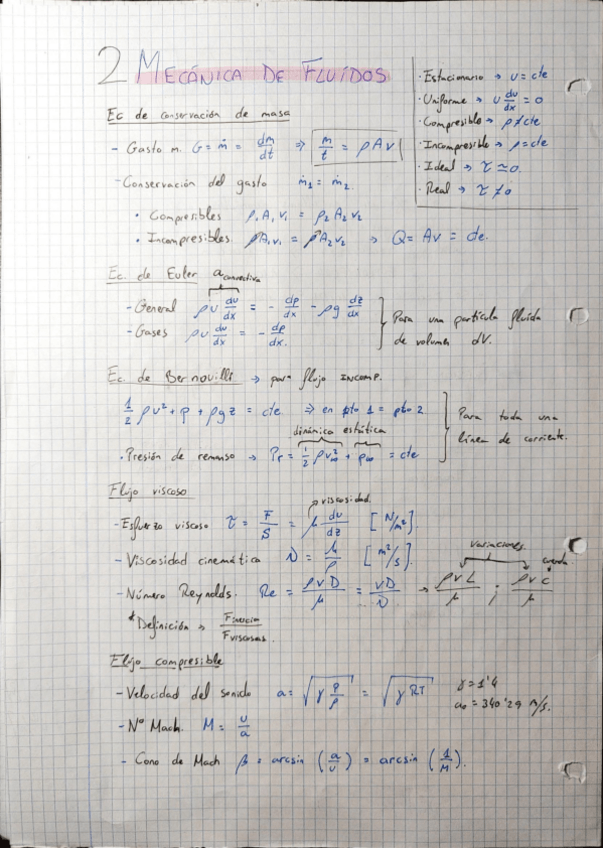 2 MECÁNICA DE FLUÍDOS
· Estacionario → v = cte
· Uniforme → v dv/dx = 0
· Compresible → ρ ≠ cte
· Incompresible → ρ = cte
· Ideal → τ ≃ 0.
· Real → τ ≠ 0
Ec de conservación de masa
- Gasto m. G = ṁ = dm/dt ⇒ m/t = ρAv
- Conservación del gasto ṁ₁ = ṁ₂
• Compresibles ρ₁A₁v₁ = ρ₂A₂v₂
• Incompresibles ρA₁v₁ = ρA₂v₂ → Q = Av = cte.
Ec. de Euler a convectiva
- General ρv dv/dx = - dp/dx - ρg dz/dx
- Gases ρv dv/dx = - dp/dx.
Para una partícula fluida
de volumen dV.
Ec. de Bernouilli → para flujo INCOMP.
1/2 ρv² + p + ρgz = cte ⇒ en pto 1 = pto 2
dinámica estática
· Presión de remanso → Pr = 1/2 ρv∞² + p∞ = cte
Para toda una
línea de corriente.
Flujo viscoso
viscosidad.
- Esfuerzo viscoso τ = F/S = μ dv/dz [N/m²].
- Viscosidad cinemática ν = μ/ρ [m²/s].
variaciones. cuerda
- Número Reynolds. Re = ρvD/μ = vD/ν → ρvL/μ ; ρvc/μ
* Definición → F inercia / F viscosas
Flujo compresible
- Velocidad del sonido a = √(γ p/ρ) = √(γRT) γ = 1'4
a₀ = 340'29 m/s.
- Nº Mach. M = v/a
- Cono de Mach β = arcsin (a/v) = arcsin (1/M).